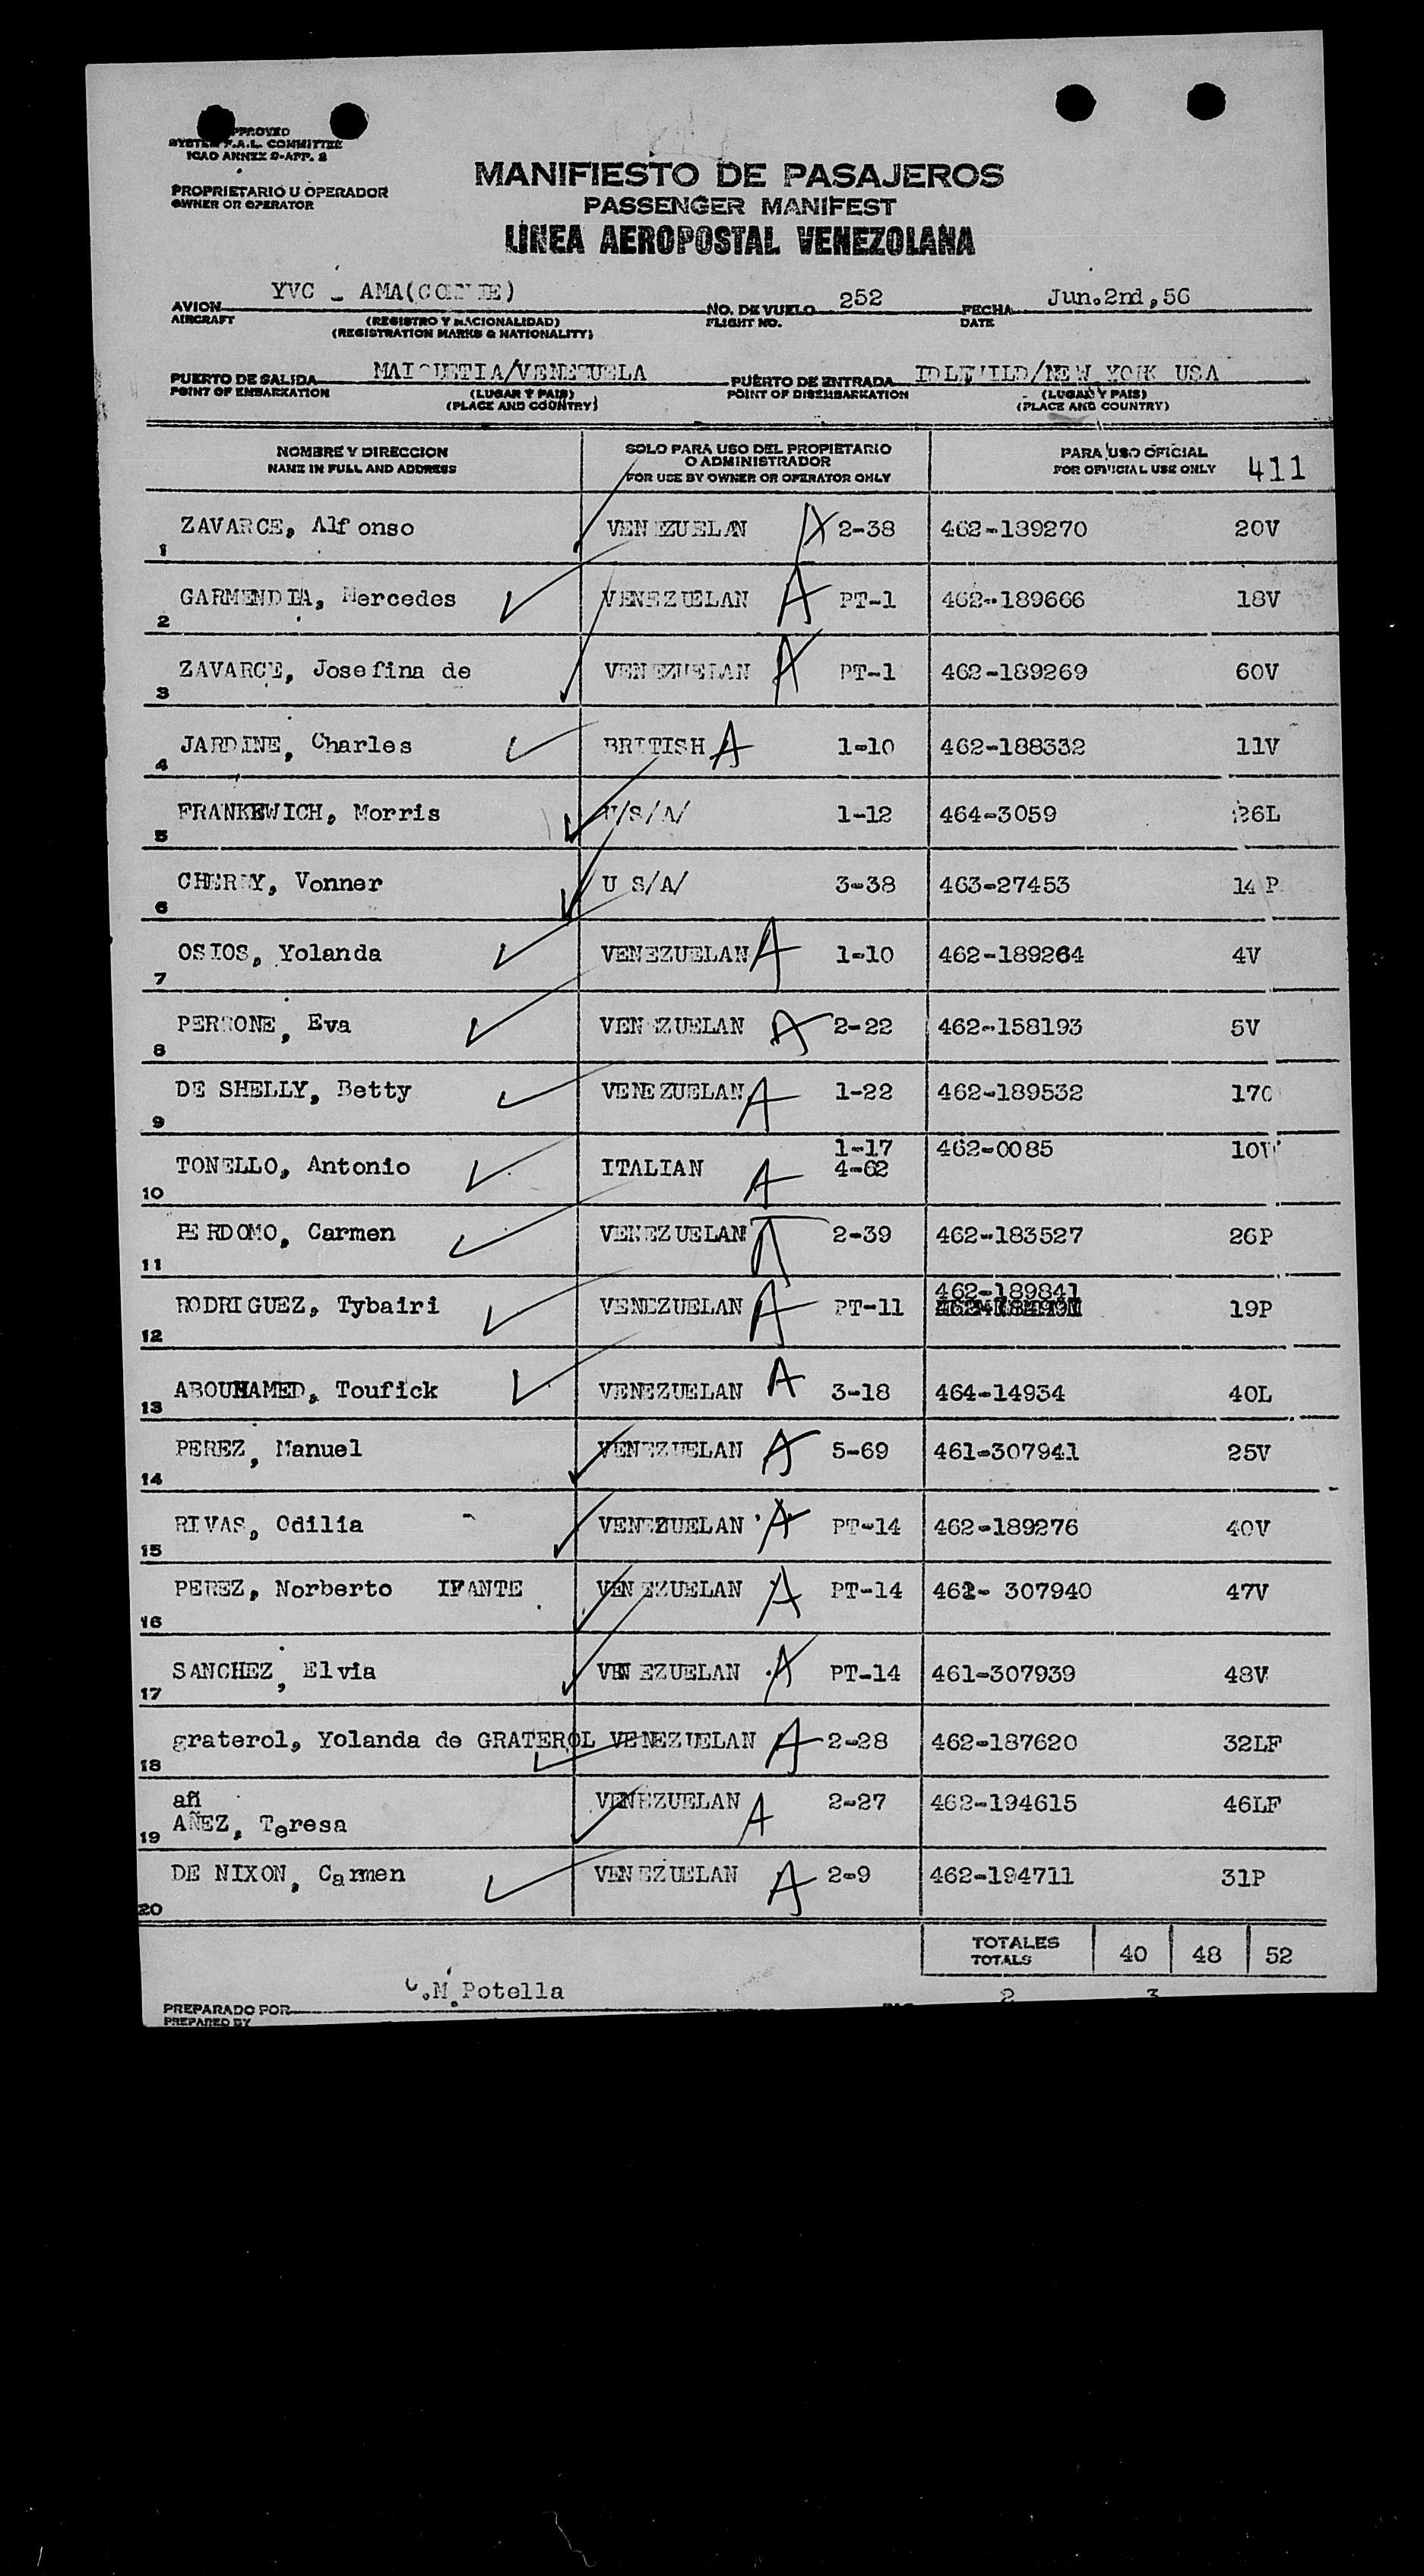 APPROVED
SYSTEM F.A.L. COMMITTEE
ICAO ANNEX 9-APP. 2
PROPRIETARIO U OPERADOR
OWNER OR OPERATOR
MANIFIESTO DE PASAJEROS
PASSENGER MANIFEST
LINEA AEROPOSTAL VENEZOLANA
AVION YVC - AMA(CONNIE) NO. DE VUELO 252 FECHA Jun.2nd,56
AIRCRAFT (REGISTRO Y NACIONALIDAD) FLIGHT NO. DATE
(REGISTRATION MARKS & NATIONALITY)
PUERTO DE SALIDA MAIQUETIA/VENEZUELA PUERTO DE ENTRADA IDLEWILD/NEW YORK USA
POINT OF EMBARKATION (LUGAR Y PAIS) POINT OF DISEMBARKATION (LUGAR Y PAIS)
(PLACE AND COUNTRY) (PLACE AND COUNTRY)
NOMBRE Y DIRECCION SOLO PARA USO DEL PROPIETARIO PARA USO OFICIAL
NAME IN FULL AND ADDRESS O ADMINISTRADOR FOR OFFICIAL USE ONLY 411
FOR USE BY OWNER OR OPERATOR ONLY
1 ZAVARCE, Alfonso VENEZUELAN A 2-38 462-189270 20V
2 GARMENDIA, Mercedes VENEZUELAN A PT-1 462-189666 18V
3 ZAVARCE, Josefina de VENEZUELAN A PT-1 462-189269 60V
4 JARDINE, Charles BRITISH A 1-10 462-188332 11V
5 FRANKEWICH, Morris U/S/A/ 1-12 464-3059 26L
6 CHERRY, Vonner U S/A/ 3-38 463-27453 14 P
7 OSIOS, Yolanda VENEZUELAN A 1-10 462-189264 4V
8 PERRONE, Eva VENEZUELAN A 2-22 462-158193 5V
9 DE SHELLY, Betty VENEZUELAN A 1-22 462-189532
1-17 462-0085 10V
10 TONELLO, Antonio ITALIAN A 4-62
11 PERDOMO, Carmen VENEZUELAN A 2-39 462-183527 26P
462-189841
12 RODRIGUEZ, Tybairi VENEZUELAN A PT-11 19P
13 ABOUHAMED, Toufick VENEZUELAN A 3-18 464-14934 40L
14 PEREZ, Manuel VENEZUELAN A 5-69 461-307941 25V
15 RIVAS, Odilia VENEZUELAN A PT-14 462-189276 40V
16 PEREZ, Norberto IFANTE VENEZUELAN A PT-14 461- 307940 47V
17 SANCHEZ, Elvia VENEZUELAN A PT-14 461-307939 48V
18 graterol, Yolanda de GRATEROL VENEZUELAN A 2-28 462-187620 32LF
añ VENEZUELAN A 2-27 462-194615 46LF
19 AÑEZ, Teresa
20 DE NIXON, Carmen VENEZUELAN A 2-9 462-194711 31P
TOTALES
TOTALS 40 48 52
PREPARADO POR .M.Potella 2 3
PREPARED BY